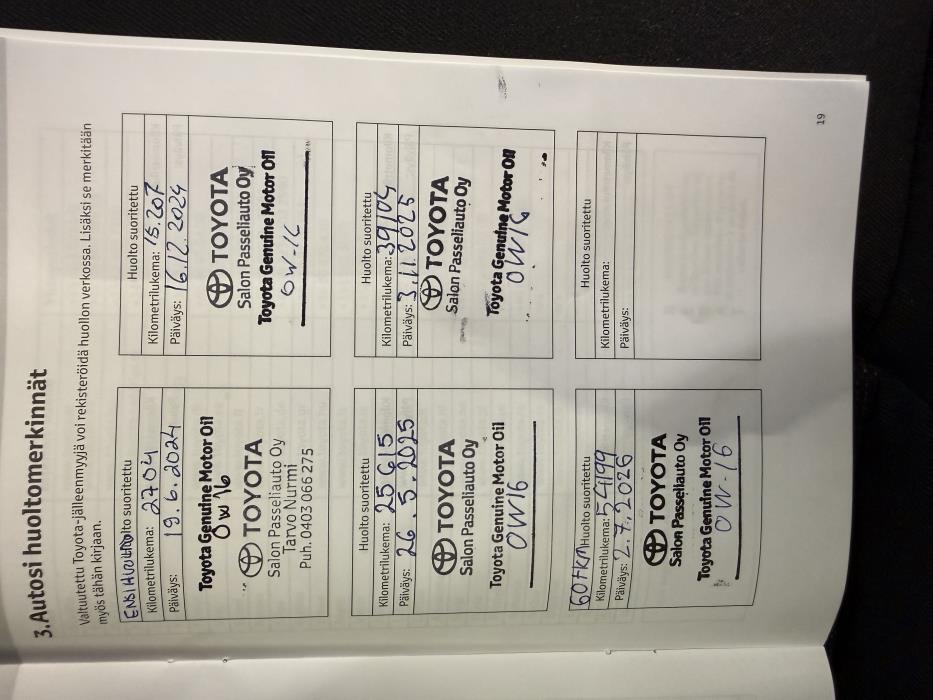 3.Autosi huoltomerkinnät
Valtuutettu Toyota-jälleenmyyjä voi rekisteröidä huollon verkossa. Lisäksi se merkitään
myös tähän kirjaan.
ENSIHUOLTO Huolto suoritettu
Kilometrilukema: 2704
Päiväys: 19.6.2024
Toyota Genuine Motor Oil
OW16
TOYOTA
Salon Passeliauto Oy
Tarvo Nurmi
Puh. 0403 066 275
Huolto suoritettu
Kilometrilukema: 15.207
Päiväys: 16.12.2024
TOYOTA
Salon Passeliauto Oy
Toyota Genuine Motor Oil
OW-16
Huolto suoritettu
Kilometrilukema: 25615
Päiväys: 26.5.2025
TOYOTA
Salon Passeliauto Oy
Toyota Genuine Motor Oil
OW16
Huolto suoritettu
Kilometrilukema: 39104
Päiväys: 3.11.2025
TOYOTA
Salon Passeliauto Oy
Toyota Genuine Motor Oil
OW16
60TKM Huolto suoritettu
Kilometrilukema: 54199
Päiväys: 2.7.2026
TOYOTA
Salon Passeliauto Oy
Toyota Genuine Motor Oil
OW-16
Huolto suoritettu
Kilometrilukema:
Päiväys:
19